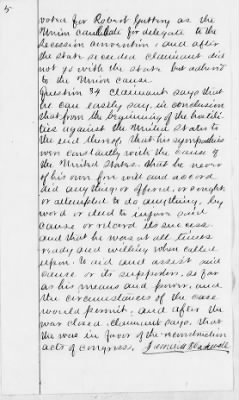 5
voted for Robert Guttry as the
Union candidate for delegate to the
Secession convention, and after
the state seceded claimant did
not go with the state but adhered
to the Union cause
Question 34 claimant says that
he can safely say, in conclusion
that from the beginning of the hostili-
ties against the United States to
the end thereof that his sympathies
were constantly with the cause of
the United States. that he never
of his own free will and accord
did anything or offered, or sought
or attempted to do anything, by
word or deed to injure said
cause or retard its success
and that he was at all times
ready and willing when called
upon. to aid and assist said
cause or its supporters, as far
as his means and power, and
the circumstances of the case
would permit. and after the
war closed, claimant says, that
he was in favor of the reconstruction
acts of congress.